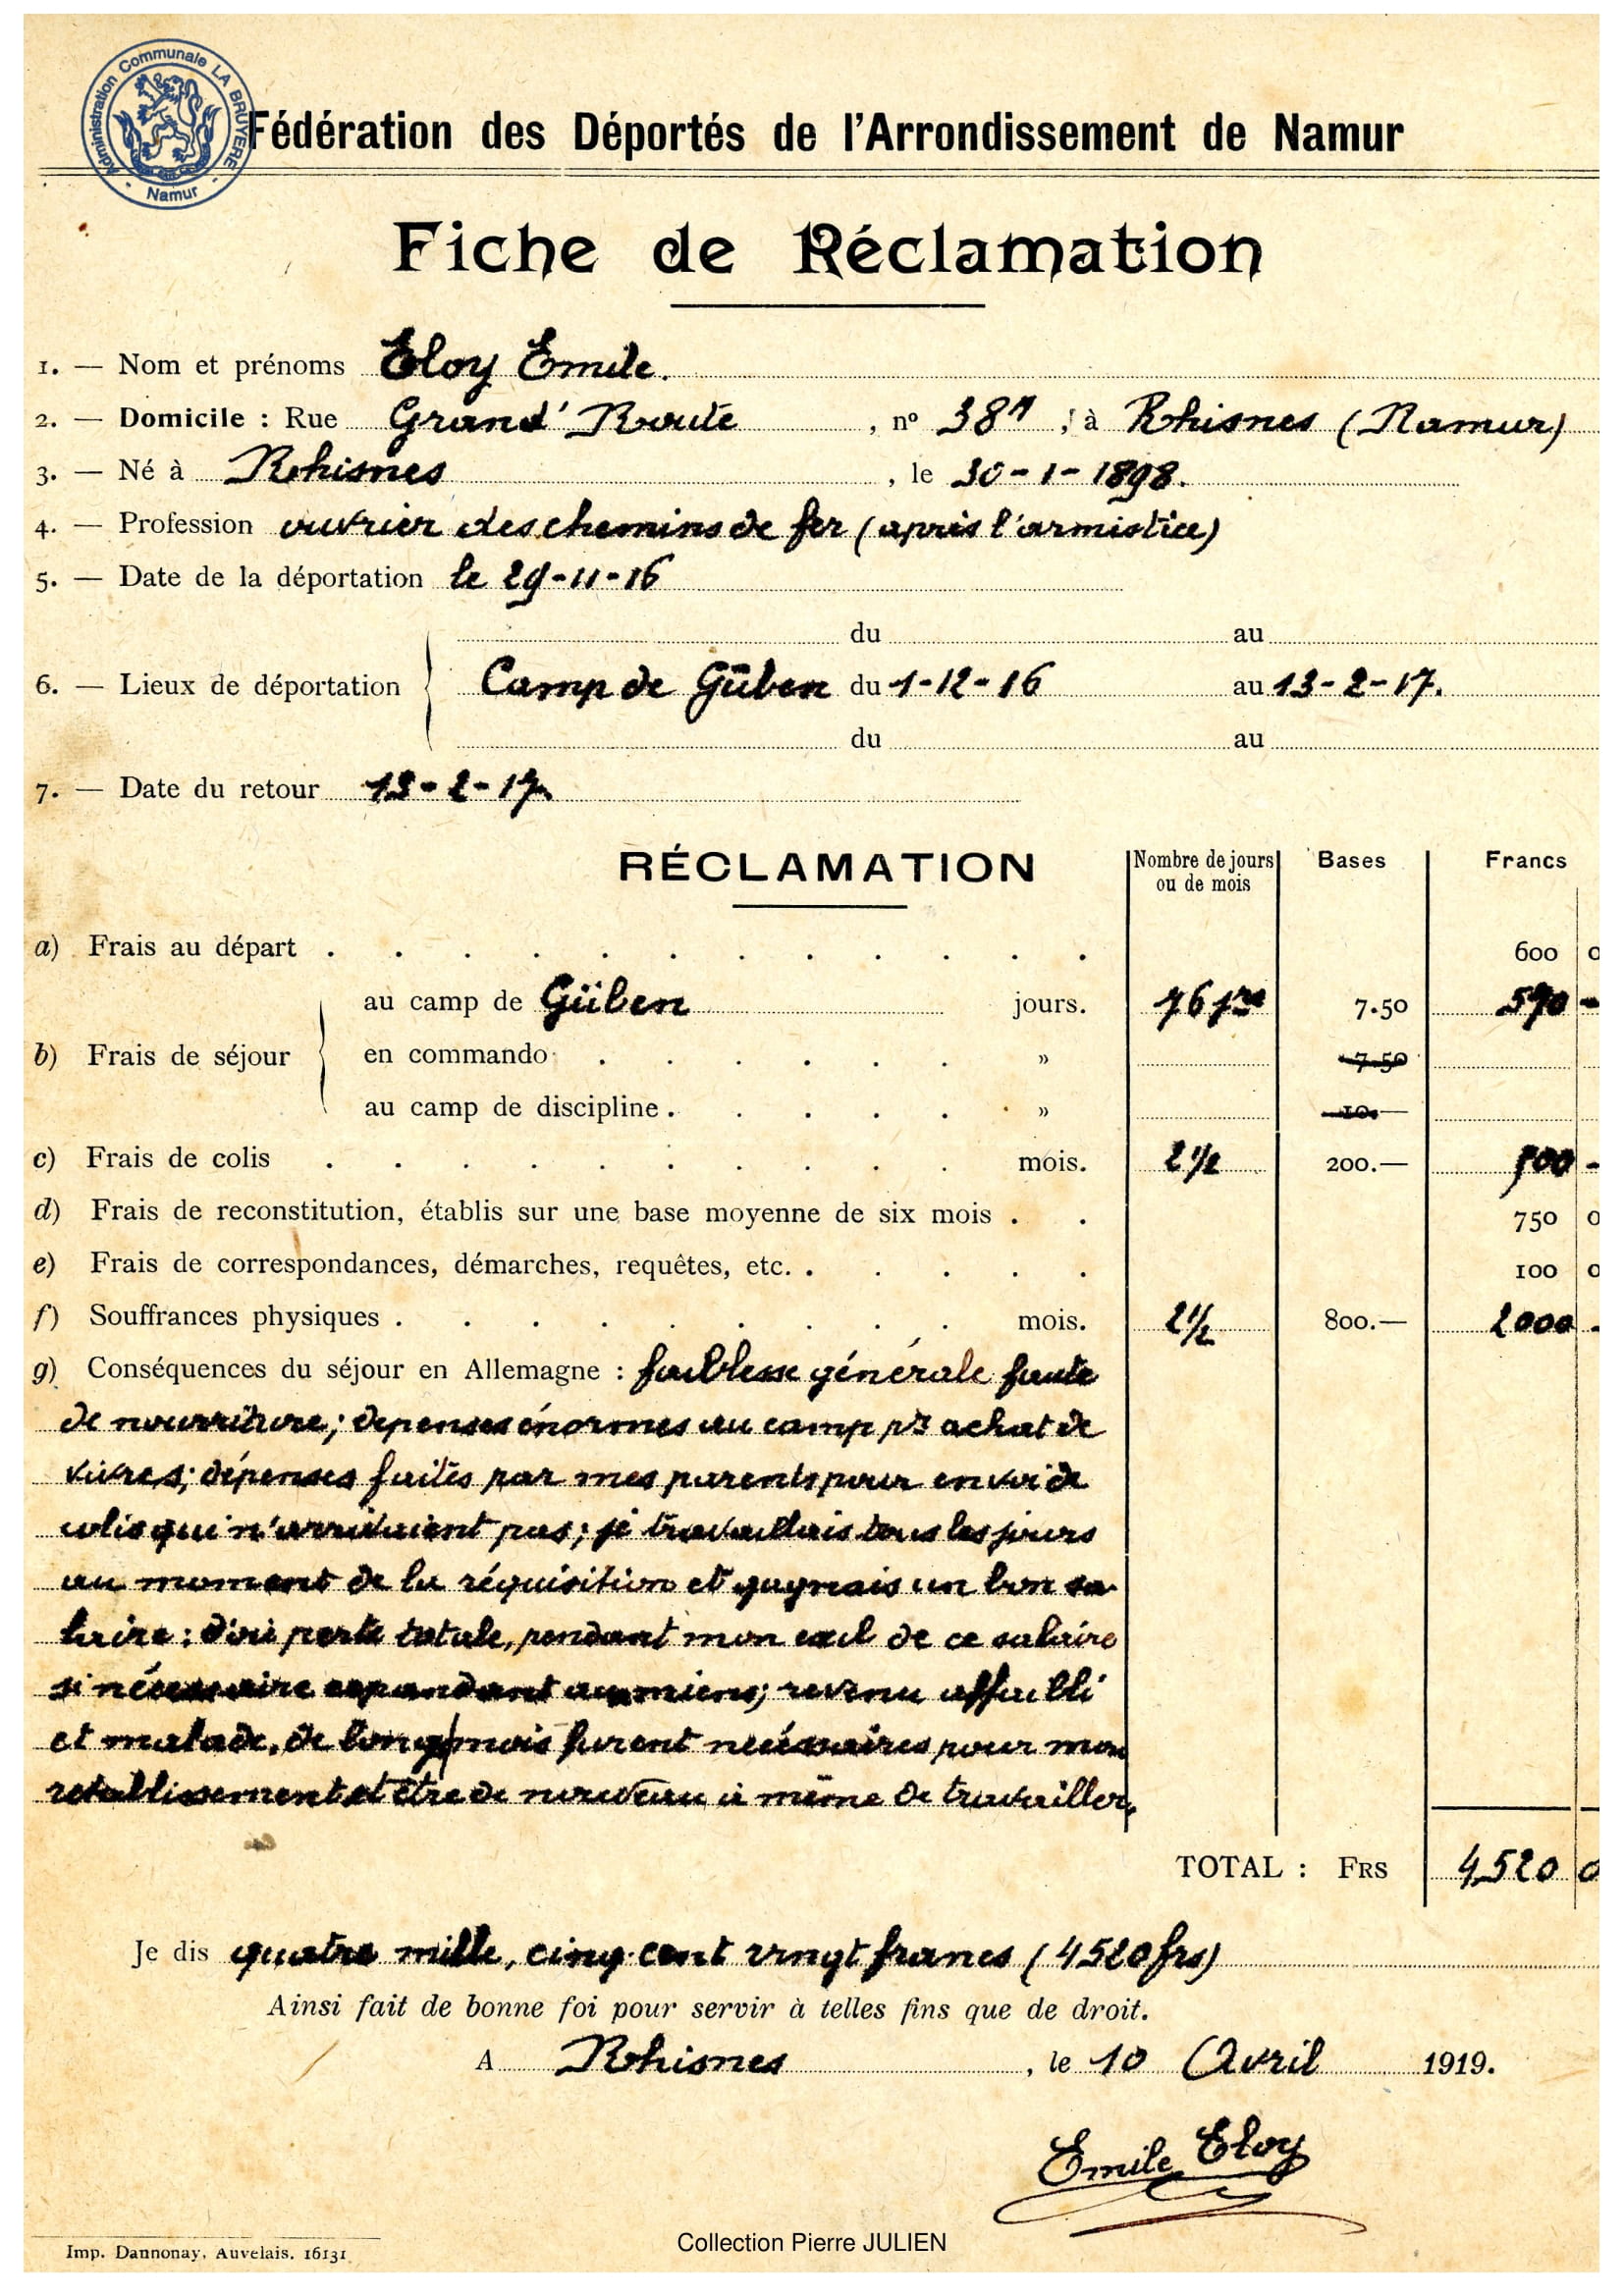 Administration Communale LA BRUYERE - Namur -
Fédération des Déportés de l'Arrondissement de Namur
Fiche de Réclamation
1. — Nom et prénoms Eloy Emile.
2. — Domicile : Rue Grand' Route , nº 387 , à Rhisnes (Namur)
3. — Né à Rhisnes , le 30-1-1898.
4. — Profession ouvrier des chemins de fer (après l'armistice)
5. — Date de la déportation le 29-11-16
du au
6. — Lieux de déportation Camp de Güben du 1-12-16 au 13-2-17.
du au
7. — Date du retour 13-2-17
RÉCLAMATION Nombre de jours ou de mois Bases Francs
a) Frais au départ 600 0
au camp de Güben jours. 76 jrs 7.50 570 -
b) Frais de séjour en commando » 7.50
au camp de discipline » 10.—
c) Frais de colis mois. 2 1/2 200.— 500 -
d) Frais de reconstitution, établis sur une base moyenne de six mois 750 0
e) Frais de correspondances, démarches, requêtes, etc. 100 0
f) Souffrances physiques mois. 2 1/2 800.— 2000 -
g) Conséquences du séjour en Allemagne : faiblesse générale faute
de nourriture; dépenses énormes au camp pr achat de
vivres; dépenses faites par mes parents pour envoi de
colis qui n'arrivaient pas; je travaillais tous les jours
au moment de la réquisition et gagnais un bon sa-
laire: d'où perte totale, pendant mon exil de ce salaire
si nécessaire cependant aux miens; revenu affaibli
et malade, de longs mois furent nécessaires pour mon
rétablissement et être de nouveau à même de travailler.
TOTAL : FRS 4520 0
Je dis quatre mille, cinq cent vingt francs (4520 frs)
Ainsi fait de bonne foi pour servir à telles fins que de droit.
A Rhisnes , le 10 Avril 1919.
Emile Eloy
Imp. Dannonay, Auvelais. 16131
Collection Pierre JULIEN